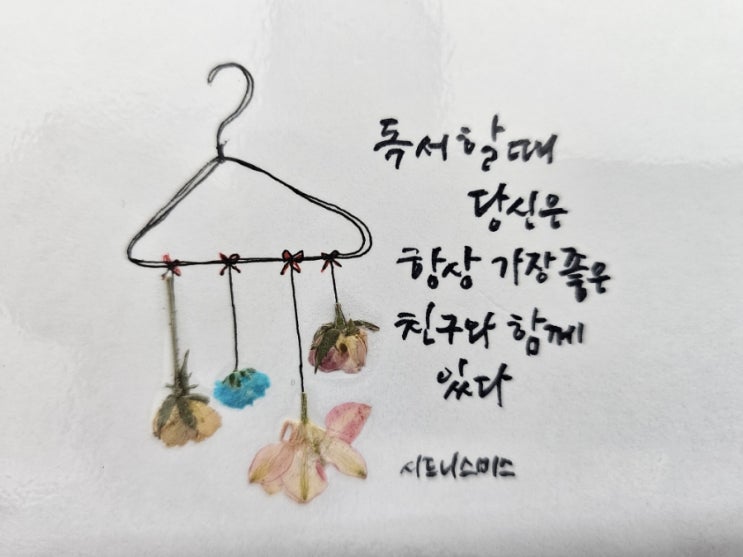 독서할 때
당신은
항상 가장 좋은
친구와 함께
있다
시드니스미스